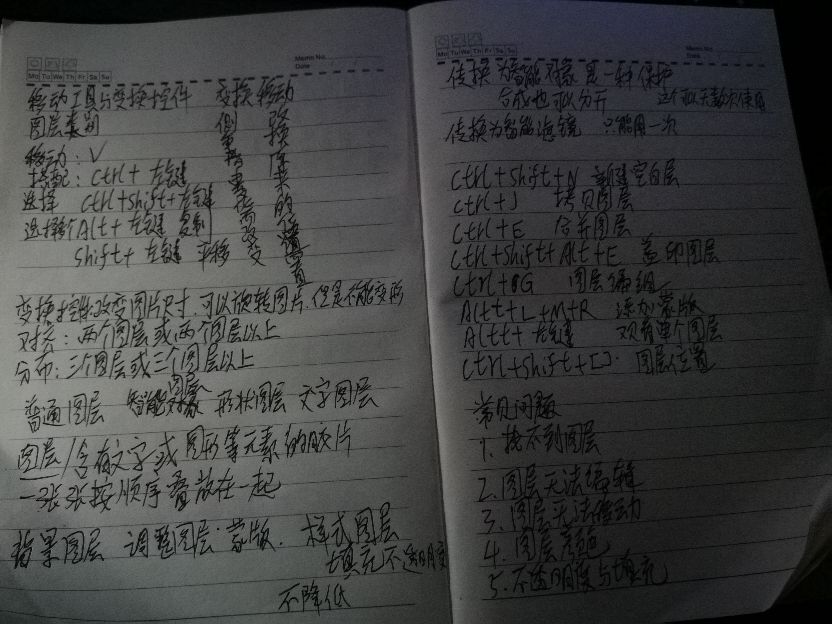 Memo No.
Date
Mo Tu We Th Fr Sa Su
移动工具与变换控件 变换 移动
图层类别
移动：V
搭配：Ctrl + 左键
选择 Ctrl+Shift+左键
选择 Alt + 左键 复制
Shift + 左键 平移
变换控件:改变图片尺寸,可以旋转图片,但是不能变形
对齐：两个图层或两个图层以上
分布：三个图层或三个图层以上
普通图层 智能对象图层 形状图层 文字图层
图层/含有文字或图形等元素的胶片
一张张按顺序叠放在一起
背景图层 调整图层·蒙版. 样式图层
填充不透明度
不降低
Memo No.
Date
Mo Tu We Th Fr Sa Su
传换为智能对象是一种保护
合成也可以分开 这个可以无数次使用
传换为智能滤镜 只能用一次
Ctrl+Shift+N 新建空白层
Ctrl+J 拷贝图层
Ctrl+E 合并图层
Ctrl+Shift+Alt+E 盖印图层
Ctrl+G 图层编组
Alt+L+M+R 添加蒙版
Alt+左键 观看单个图层
Ctrl+Shift+[] 图层位置
常见问题
1. 找不到图层
2. 图层无法编辑
3. 图层无法移动
4. 图层
5. 不透明度与填充